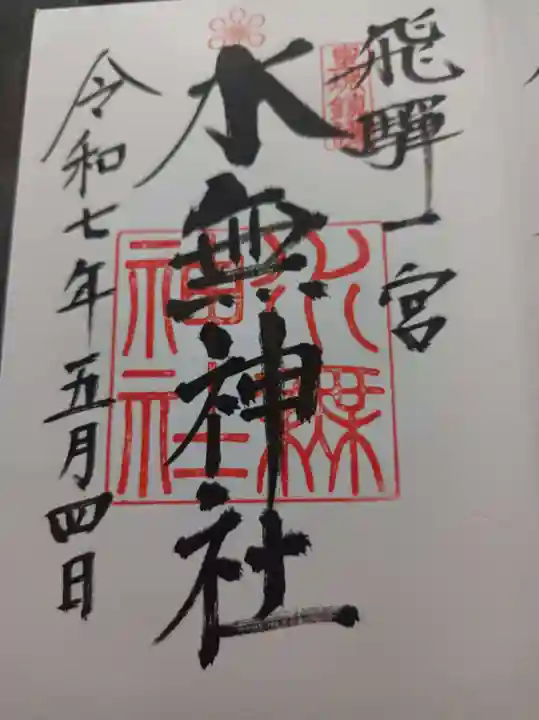 飛騨一宮
水無神社
水無
神社
令和七年五月四日